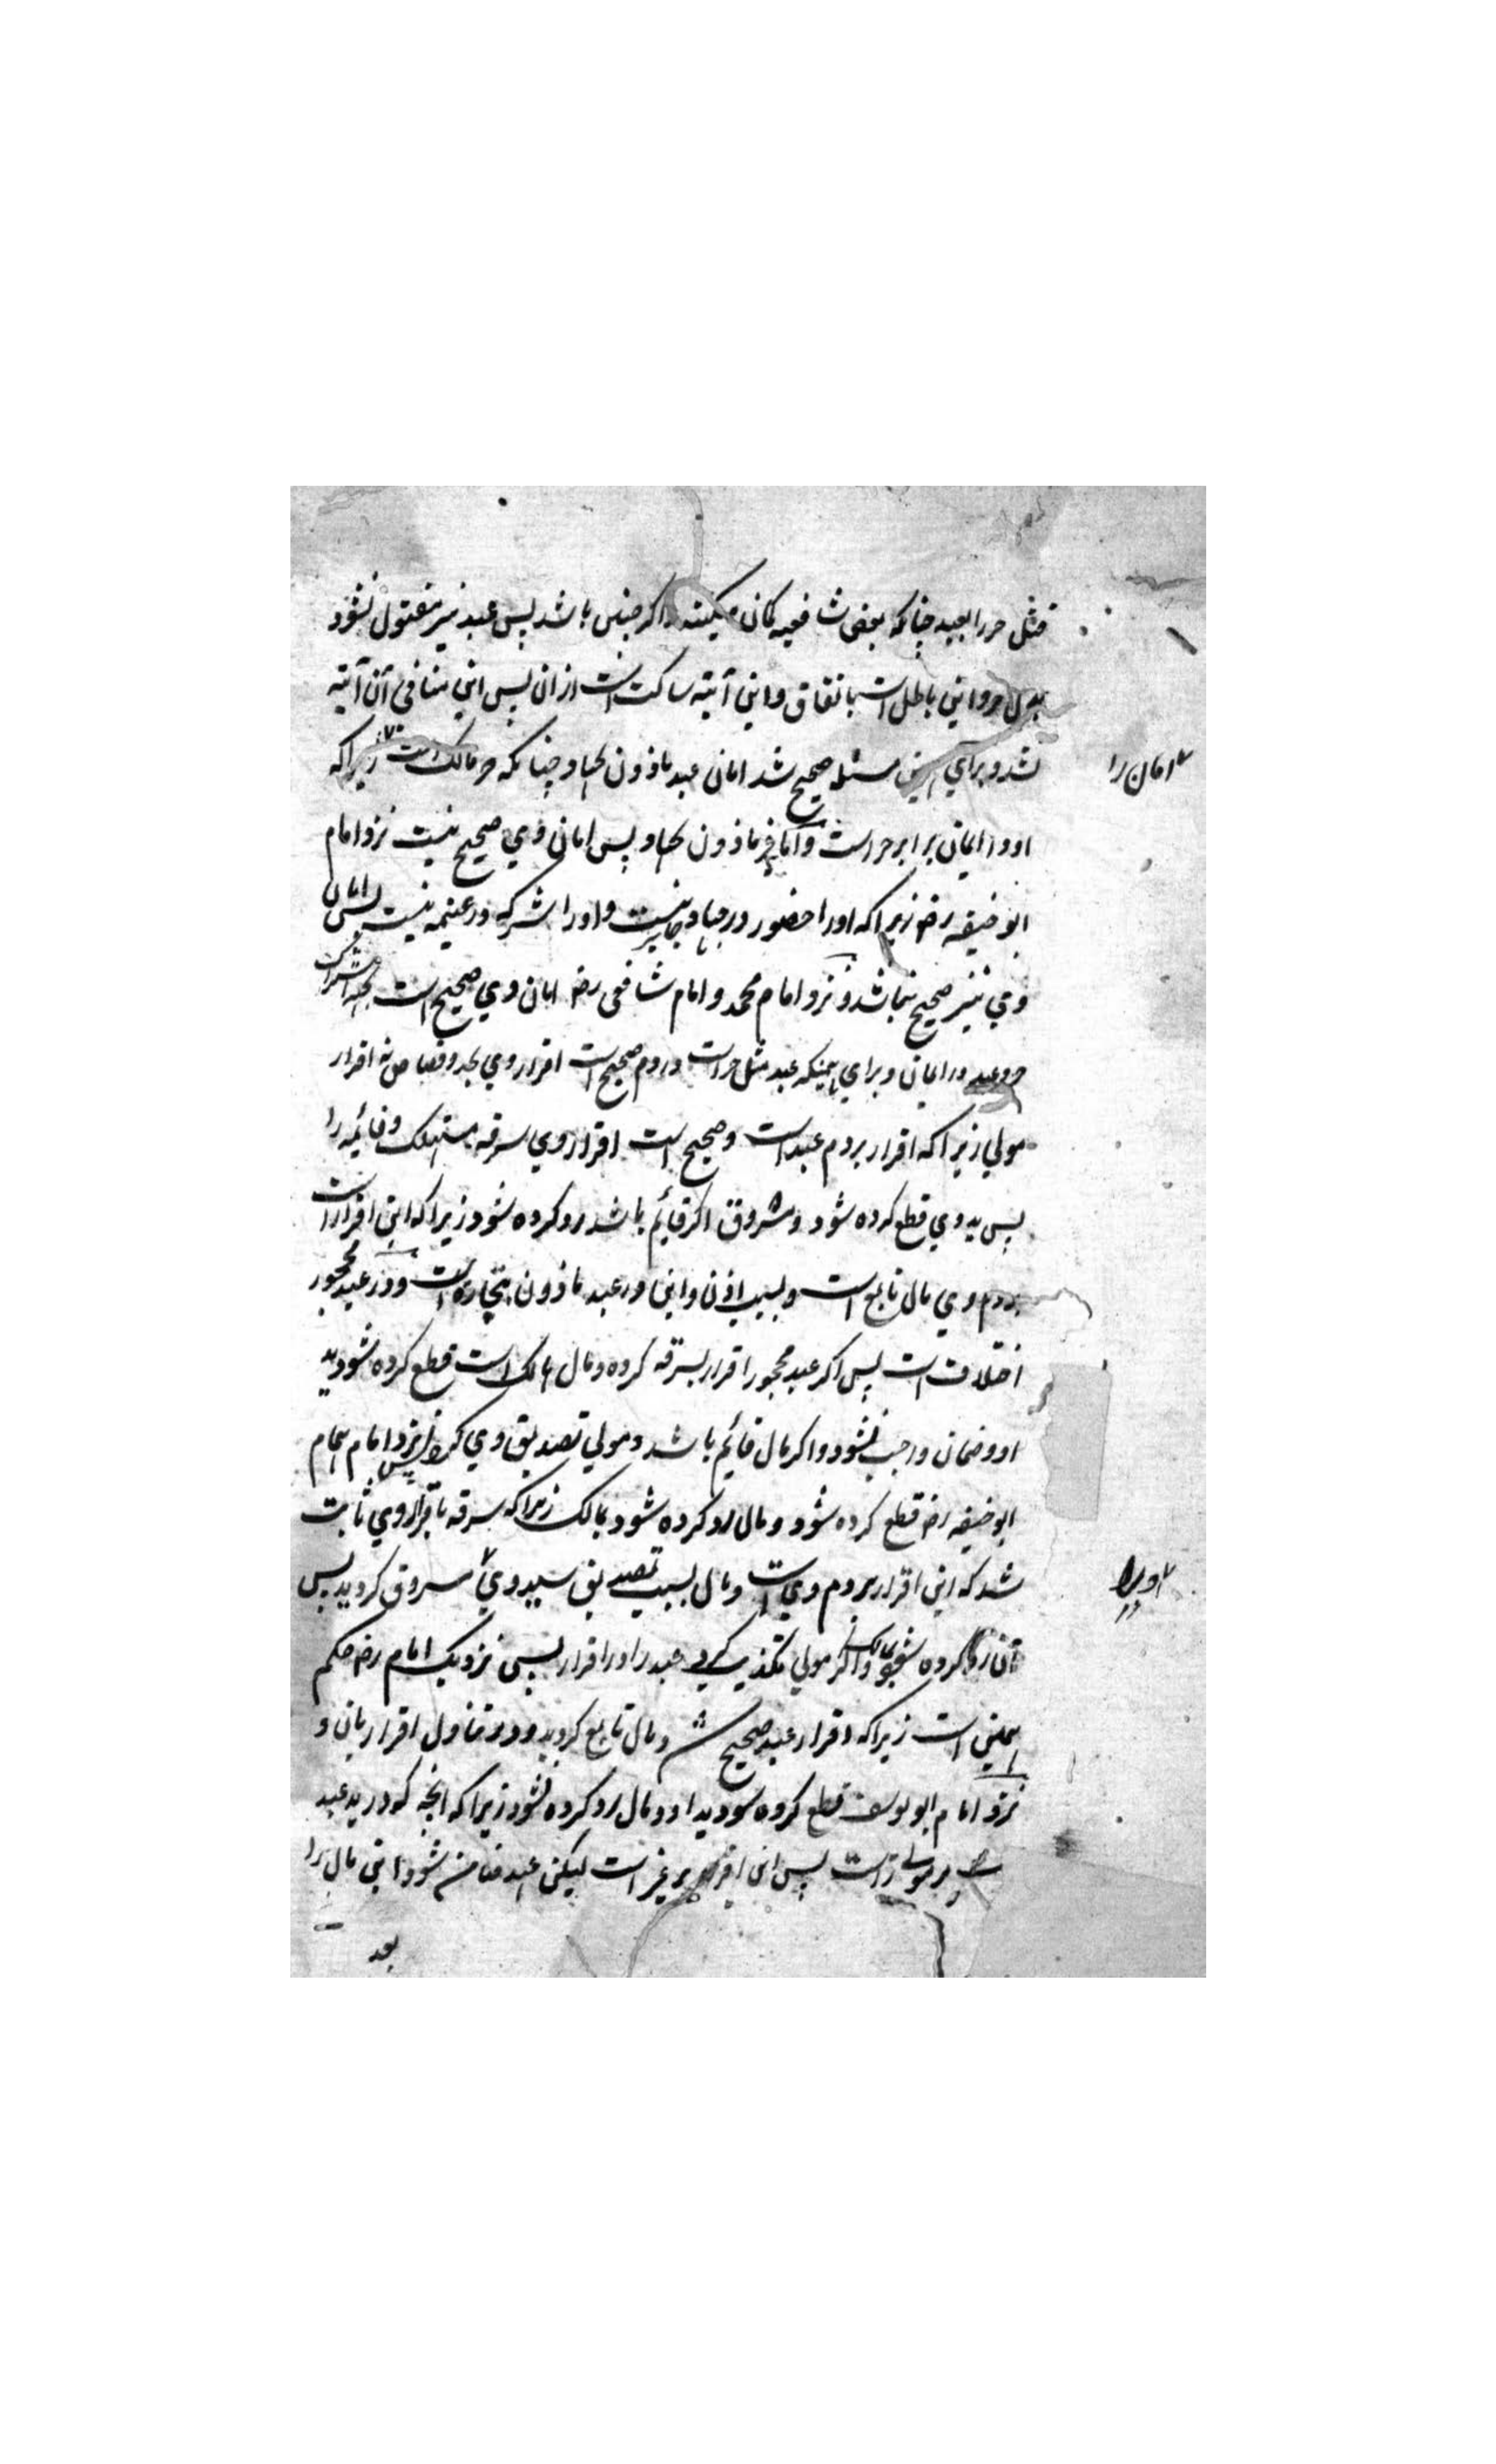 قتل حر را بعبد چنانکه بعض شافعیه کمان میکنند اکر چنین باشد پس عبد نیز مقتول نشود
بدل حر و این باطل است باتفاق و این آیته ساکت است از ان پس این منافی آن آیته
نشد و برای همین مسئله صحیح شد امان عبد ماذون بجهاد چنانکه حر مالک است زیراکه
امان را
او در ایمان برابر حر است و اما غیر ماذون بجهاد پس امان وی صحیح نیست نزد امام
ابو حنیفه رض زیراکه اورا حضور در جهاد جایز نیست و اورا شرکه در غنیمه نیست پس امان
وی نیز صحیح نباشد و نزد امام محمد و امام شافعی رض امان وی صحیح است بجهة اشتراک
حر و عبد در ایمان و برای همینکه عبد مثل حر است در دم صحیح است اقرار وی بحد و قصاص نه اقرار
مولی زیراکه اقرار بر دم عبد است و صحیح است اقرار وی سرقه مستهلک و قائمه را
پس ید وی قطع کرده شود و مسروق اکر قائم باشد رد کرده شود زیراکه این اقرار است
بر دم وی مال تابع است و بسبب اذن و این در عبد ماذون بتجارة است و در عبد محجور
اختلاف است پس اکر عبد محجور اقرار بسرقه کرده و مال هالک است قطع کرده شود ید
او و ضمان واجب نشود و اکر مال قائم باشد و مولی تصدیق وی کرد پس نزد امام همام
ابو حنیفه رض قطع کرده شود و مال رد کرده شود بمالک زیراکه سرقه باقرار وی ثابت
شد که این اقرار بر دم وی است و مال بسبب تصدیق سید وی مسروق کردید پس
او ویرا
آن رد کرده شود بمالک و اکر مولی تکذیب کرد عبد را در اقرار پس نزدیک امام رض حکم
همین است زیراکه اقرار عبد صحیح شد و مال تابع کردید و در تناول اقرار بان و
نزد امام ابو یوسف قطع کرده شود ید او و مال رد کرده نشود زیراکه انچه که در ید عبد
است بر مولی است پس این اقرار بر غیر است لیکن عبد ضامن شود این مال را
بعد